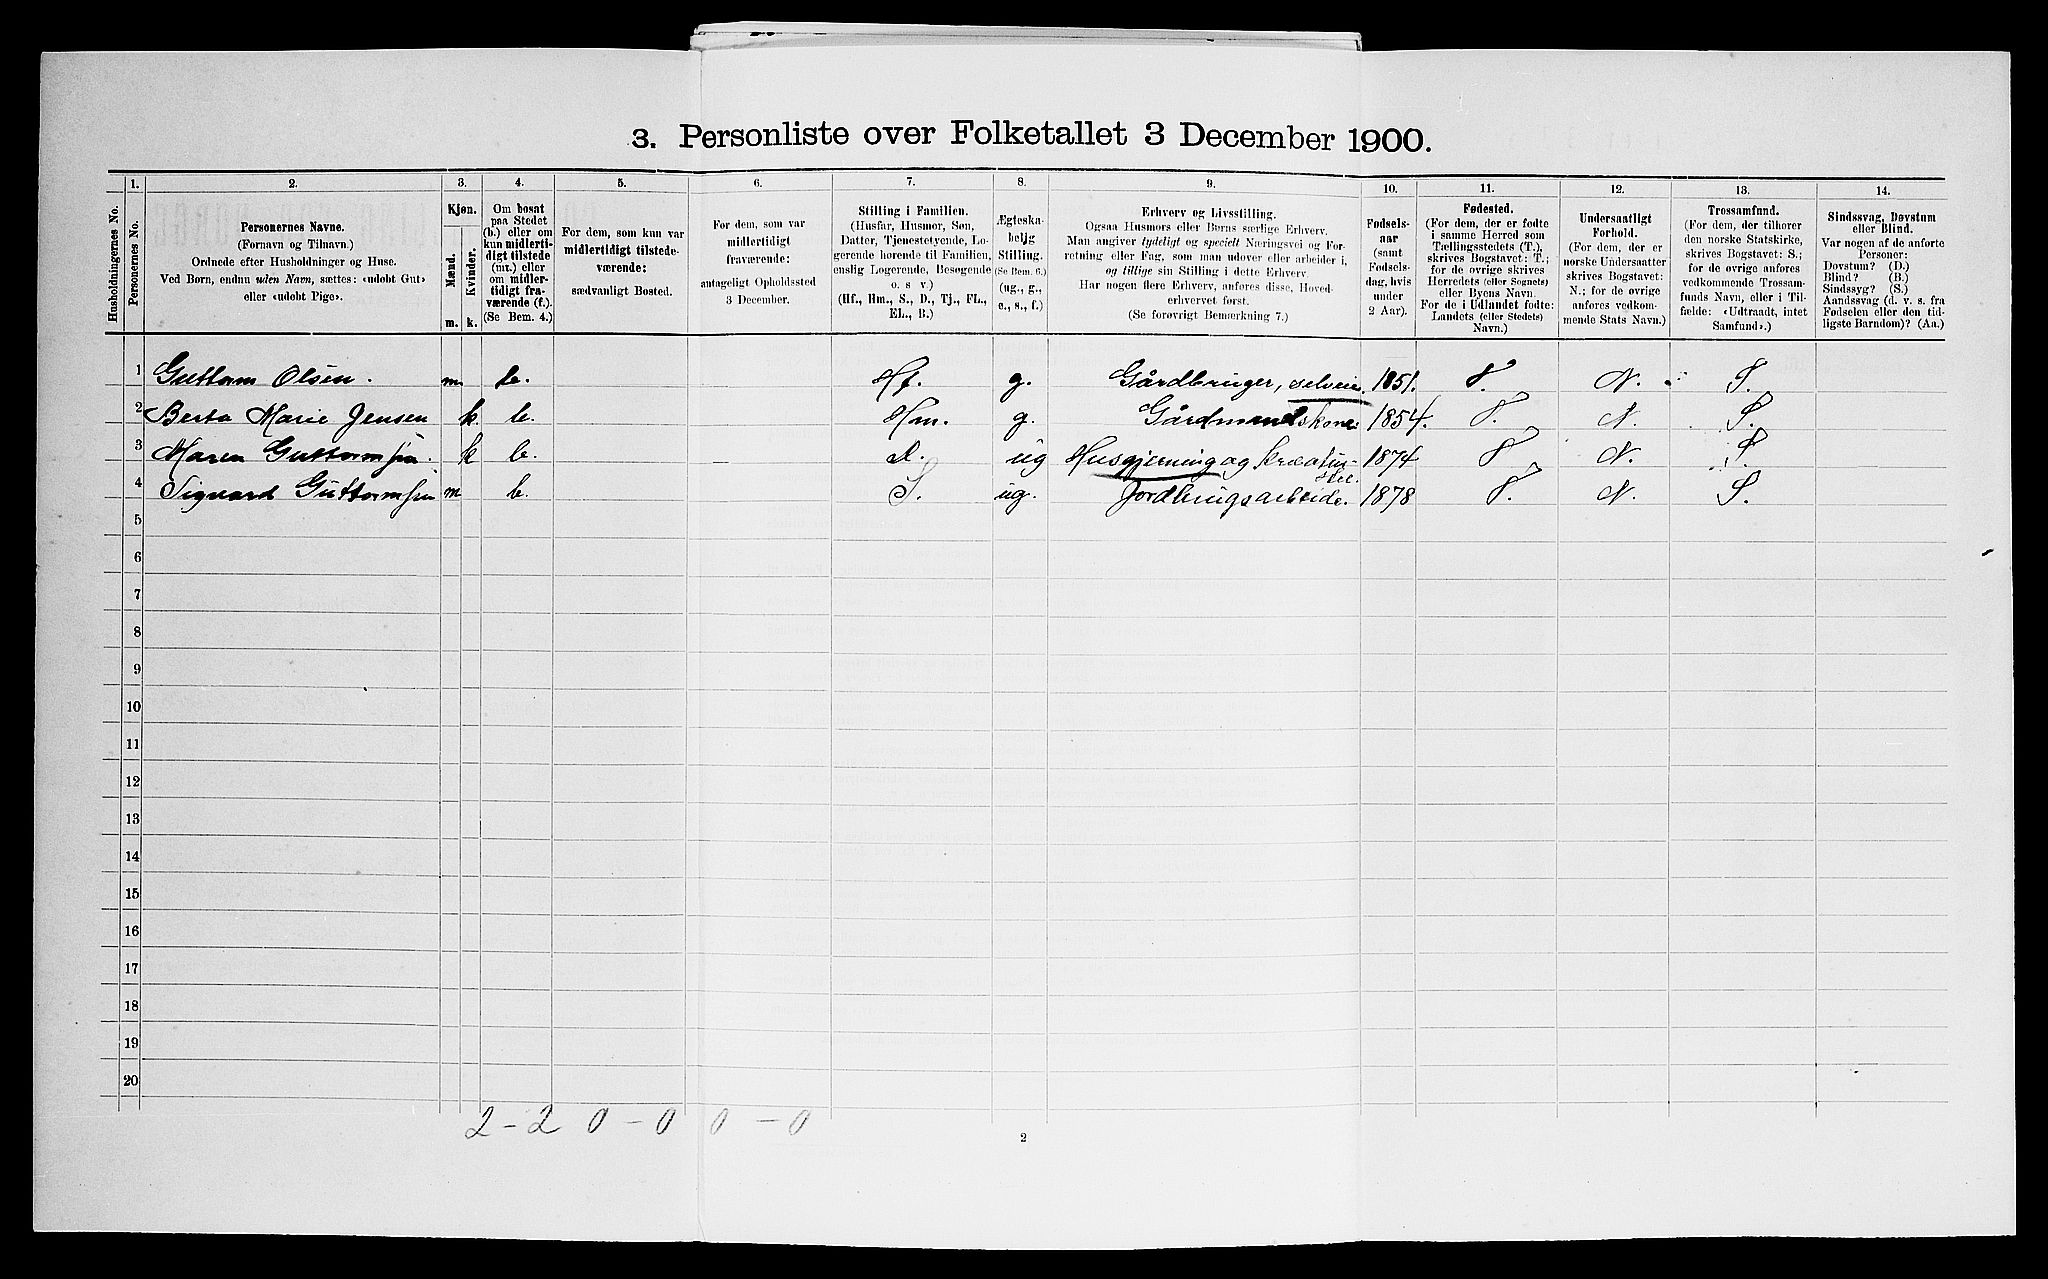 3. Personliste over Folketallet 3 December 1900.
1. 2. 3. 4. 5. 6. 7. 8. 9. 10. 11. 12. 13. 14.
Husholdningernes No.
Personernes No.
Personernes Navne.
(Fornavn og Tilnavn.)
Ordnede efter Husholdninger og Huse.
Ved Børn, endnu uden Navn, sættes: «udøbt Gut»
eller «udøbt Pige».
Kjøn.
Mænd.
Kvinder.
m. k.
Om bosat
paa Stedet
(b.) eller om
kun midlerti-
digt tilstede
(mt.) eller
om midler-
tidigt fra-
værende (f.).
(Se Bem. 4.)
For dem, som kun var
midlertidigt tilstede-
værende:
sædvanligt Bosted.
For dem, som var
midlertidigt
fraværende:
antageligt Opholdssted
3 December.
Stilling i Familien.
(Husfar, Husmor, Søn,
Datter, Tjenestetyende, Lo-
gerende hørende til Familien,
enslig Logerende, Besøgende
o. s v.)
(Hf., Hm., S., D., Tj., FL.,
EL., B.)
Ægteska-
belig
Stilling.
(Se Bem. 6.)
(ug., g.,
e., s., f.)
Erhverv og Livsstilling.
Ogsaa Husmors eller Børns særlige Erhverv.
Man angiver tydeligt og specielt Næringsvei og For-
retning eller Fag, som man udøver eller arbeider i,
og tillige sin Stilling i dette Erhverv.
Har nogen flere Erhverv, anføres disse, Hoved-
erhvervet først.
(Se forøvrigt Bemærkning 7.)
Fødsels-
aar
(samt
Fødsels-
dag, hvis
under
2 Aar).
Fødested.
(For dem, der er fødte
i samme Herred som
Tællingsstedets (T.),
skrives Bogstavet: T.;
for de øvrige skrives
Herredets (eller Sognets)
eller Byens Navn.
For de i Udlandet fødte:
Landets (eller Stedets)
Navn.)
Undersaatligt
Forhold.
(For dem, der er
norske Undersaatter
skrives Bogstavet:
N.; for de øvrige
anføres vedkom-
mende Stats Navn.)
Trossamfund.
(For dem, der tilhører
den norske Statskirke,
skrives Bogstavet: S.;
for de øvrige anføres
vedkommende Trossam-
funds Navn, eller i Til-
fælde: «Udtraadt, intet
Samfund».)
Sindssvag, Døvstum
eller Blind.
Var nogen af de anførte
Personer:
Døvstum? (D.)
Blind? (B.)
Sindssyg? (S.)
Aandssvag (d. v. s. fra
Fødselen eller den tid-
ligste Barndom)? (Aa.)
1 Guttorm Olsen. m. b. Hf. g. Gårdbruger, selveier. 1851. T. N. S.
2 Berta Marie Jensen k. b. Hm. g. Gårdmandskone 1854. T. N. S.
3 Maren Guttormsen. k b. D. ug Husgjerning og kreatur-
stel. 1874 T N. S.
4 Sigvard Guttormsen m b. S. ug. Jordbrugsarbeide. 1878 T. N. S.
5
6
7
8
9
10
11
12
13
14
15
16
17
18
19
20
2-2 0-0 0-0
2